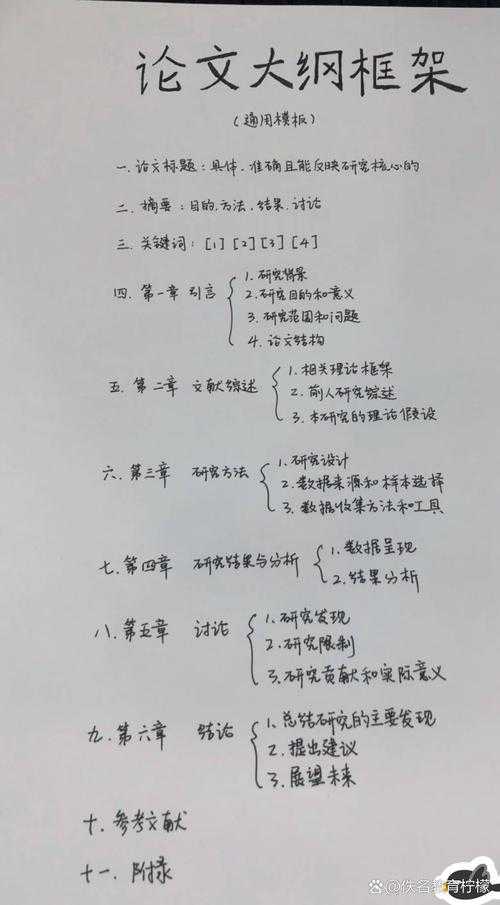 论文大纲框架
(通用模板)
一.论文标题:具体.准确且能反映研究核心的
二.摘要:目的.方法.结果.讨论
三.关键词:[1][2][3][4]
四.第一章 引言
1.研究背景
2.研究目的和意义
3.研究范围和问题
4.论文结构
五.第二章 文献综述
1.相关理论框架
2.前人研究综述
3.本研究的理论假设
六.第三章 研究方法
1.研究设计
2.数据来源和样本选择
3.数据收集方法和工具
七.第四章 研究结果与分析
1.数据呈现
2.结果分析
八.第五章 讨论
1.研究发现
2.研究限制
3.研究贡献和实际意义
九.第六章 结论
1.总结研究的主要发现
2.提出建议
3.展望未来
十.参考文献
十一.附录
@佚名教育柠檬